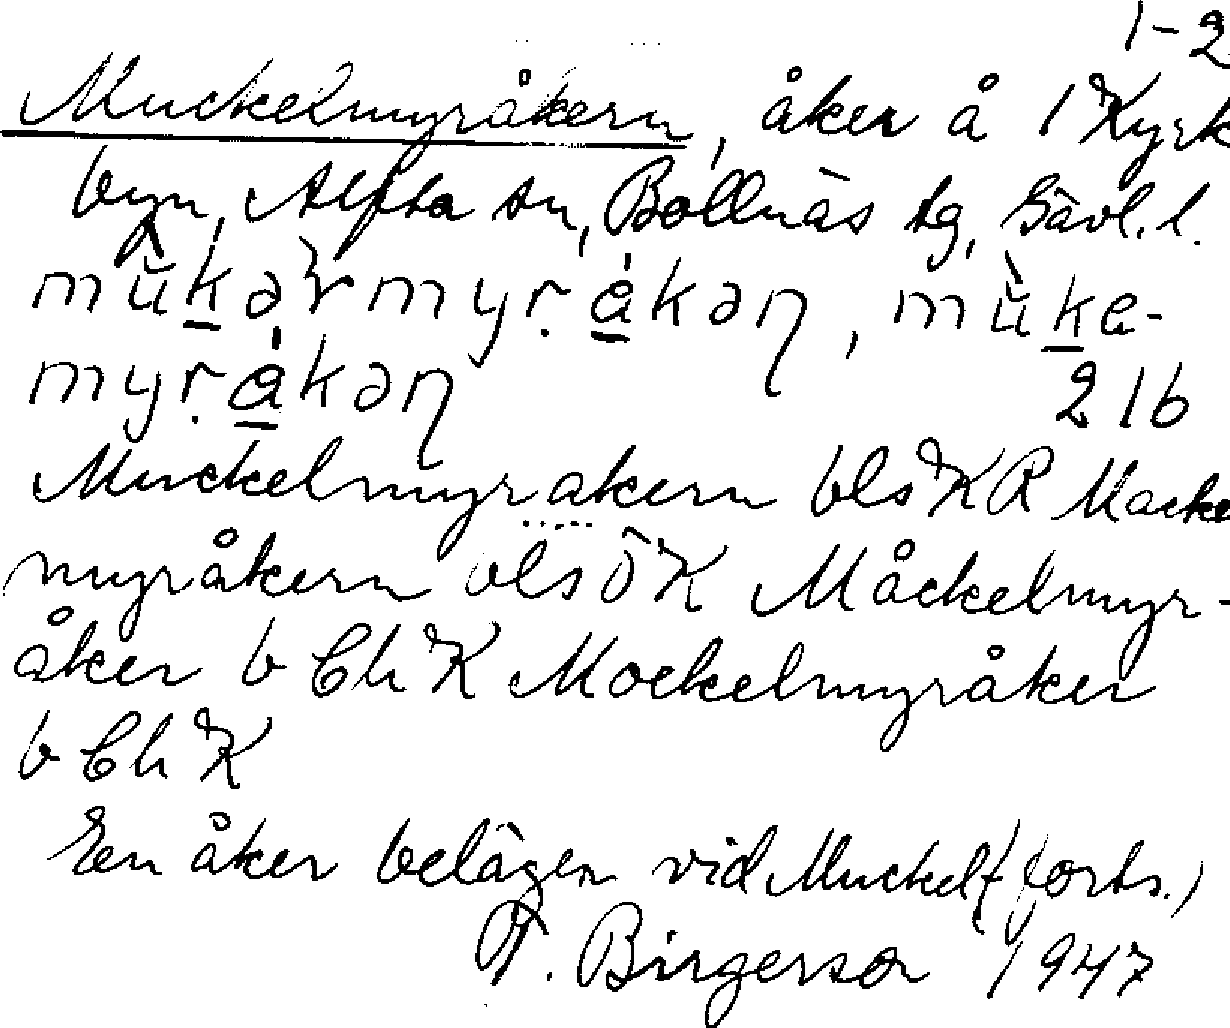 1-2
Muckelmyråkern, åker å 1 Kyrk
byn, Alfta sn, Bollnäs tg, Gävl. l.
mùkərmyṛákəɳ, mùke-
myṛákəɳ 216
Muckelmyrakern bls KR Macke
myråkern bls ÖK Måckelmyr-
åker b Ch K Mockelmyråker
b Ch K
En åker belägen vid Muckel (forts.)
T. Birgerson 1947